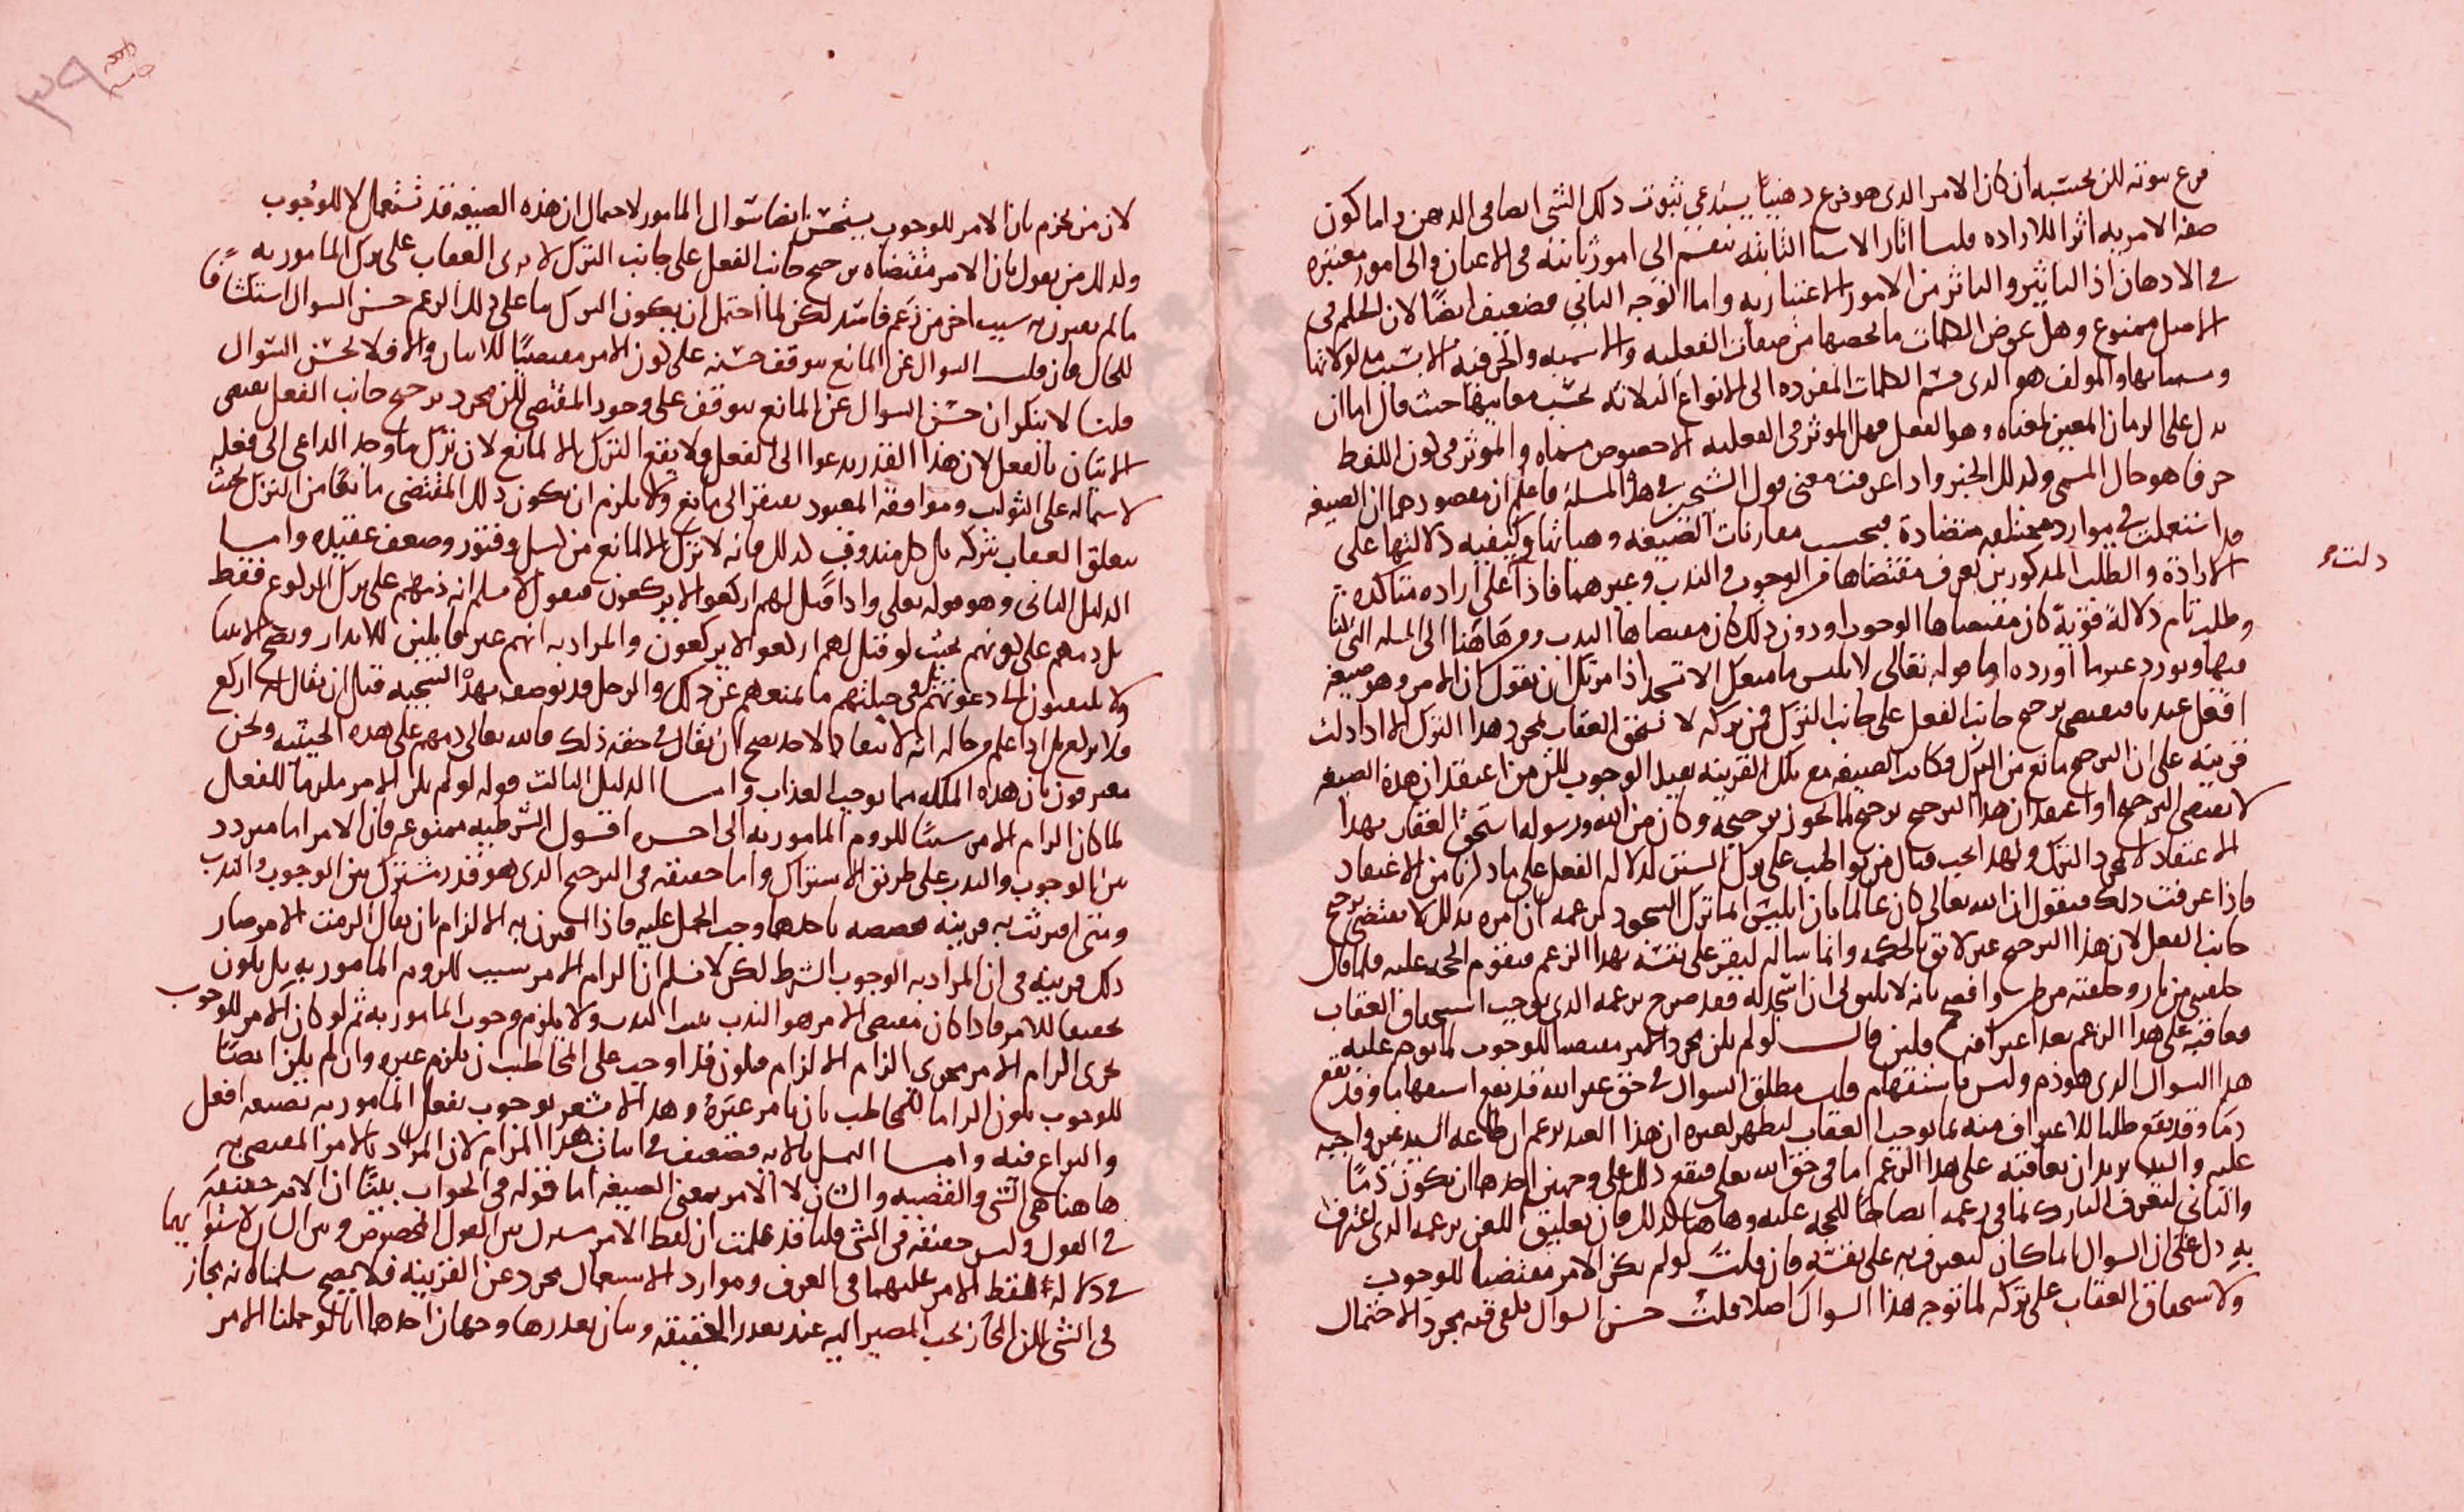 فرع ثبوته لكن بحسبه ان كان الامر الذى هو فرع ذهنيا يستدعى ثبوت ذلك الشى ايضا فى الذهن واما كون
صفة الامرية اثرا للاراده قلنا اثار الاشيا الثابته تنقسم الى امور ثابته فى الاعيان والى امور معتبره
فى الاذهان اذ التاثير والتاثر من الامور الاعتباريه واما الوجه الثانى فضعيف ايضا لان الحكم فى
الاصل ممنوع وهل عرض الكلمات ما يخصها من صفات الفعليه والاسميه والحرفيه الا بسبب مدلولاتها
ومسمياتها والمولف هو الذى قسم الكلمات المفرده الى الانواع الثلاثه بحسب معانيها حيث قال اما ان
يدل على الزمان المعين لمعناه وهو الفعل فهل الموثر فى الفعليه الا خصوص مسماه والموثر فى كون اللفظ
حرفا هو حال المسمى وكذلك الخبر واذا عرفت معنى قول الشيخين فى هذه المسلة فاعلم ان مقصودهما ان الصيغه
قد استعملت فى موارد مختلفه متضادة فبحسب مقارنات الصيغه وهياتها وكيفيه دلالتها على
الارادة والطلب المذكورين يعرف مقتضاها من الوجوب والندب وغيرهما فاذا على اراده متاكده
دلت
وطلب تام دلالة قوية كان مقتضاها الوجوب او دون ذلك كان مقتضاها الندب ومن هاهنا الى المسله التى تليها
فيها ونورد عين ما اورده اما قوله تعالى لابليس ما منعك الا تسجد اذ امرتك ان نقول ان الامر وهو صيغه
افعل عندنا مقتضى ترجح جانب الفعل على جانب الترك فمن تركه لا يستحق العقاب لمجرد هذا الترك الا اذا دلت
قرينه على ان الترجح مانع من الترك وكانت الصيغه مع تلك القرينه يفيد الوجوب لكن من اعتقد ان هذه الصيغه
لا تقتضى الترجح او اعتقد ان هذا الترجح ترجح لما لا يجوز ترجيحه وكان من الله ورسوله استحق العقاب بهذا
الاعتقاد لا لمجرد الترك ولهذا يجب قتال من تواطب على ترك السنن لدلالة الفعل على ما ذكرنا من الاعتقاد
فاذا عرفت ذلك فنقول ان الله تعالى كان عالما بان ابليس انما ترك السجود لزعمه ان امره بذلك لا يقتضى ترجح
جانب الفعل لان هذا الترجح غير لائق بالحكمه وانما ساله ليقر على نفسه بهذا الزعم فتقوم الحجه عليه فلما قال
خلقتنى من نار وخلقته من طين وافصح بانه لا يليق لى ان اسجد له فقد صرح بزعمه الذى يوجب استحقاق العقاب
فعاقبه على هذا الزعم بعد اعترافه فلئن قال لو لم يكن مجرد الامر مقتضيا للوجوب لما توجه عليه
هذا السوال الذى هو ذم وليس باستفهام قلت مطلق السوال فى حق غير الله قد يقع استفهاما وقد يقع
ذما وقد يقع طلبا للاعتراف منه بما يوجب العقاب ليظهر لغيره ان هذا العبد يزعم ان طاعة السيد غير واجبه
عليه والسيد يريد ان يعاقبه على هذا الزعم اما فى حق الله تعلى فيقع ذلك على وجهين احدهما ان يكون ذما
والثانى ليعرف التارك بما فى زعمه ايضاحا للحجه عليه وهاهنا كذلك فان تعليق اللعن بزعمه الذى اعترف
به دل على ان السوال انما كان ليعترف به على نفسه فان قلت لو لم يكن الامر مقتضيا للوجوب
ولاستحقاق العقاب على تركه لما توجه هذا السوال اصلا قلت حسن السوال يكفى فيه مجرد الاحتمال
٣٩
لان من يجزم بان الامر للوجوب يستحسن ايضا سوال المامور لاحتمال ان هذه الصيغه قد تستعمل لا للوجوب
وكذلك من يقول بان الامر مقتضاه ترجح جانب الفعل على جانب الترك لا يرى العقاب على ترك المامور به
ما لم يقترن به سبب اخر من زعم فاسد لكن لما احتمل ان يكون الترك بنا على ذلك الزعم حسن السوال استكشافا
للحال فان قلت السوال عن المانع يتوقف حسنه على كون الامر مقتضيا للاتيان والا فلا يحسن السوال
قلنا لا ينكر ان حسن السوال عن المانع يتوقف على وجود المقتضى لكن مجرد ترجح جانب الفعل يقتضى
الاتيان بالفعل لان هذا القدر يدعوا الى الفعل ولا يقع الترك الا لمانع لان ترك ما وجد الداعى الى فعله
لاشتماله على الثواب وموافقة المعبود يفتقر الى مانع ولا يلزم ان يكون ذلك المقتضى مانعا من الترك بحيث
يتعلق العقاب بتركه بل كل مندوب كذلك فانه لا يترك الا لمانع من كسل وفتور وضعف عقيده واما
الدليل الثانى وهو قوله تعلى واذا قيل لهم اركعوا لا يركعون فنقول لا نسلم انه ذمهم على ترك الركوع فقط
بل ذمهم على كونهم بحيث لو قيل لهم اركعوا لا يركعون والمراد به انهم غير قابلين للانذار ونصح الانبيا
ولا يلتفتون الى دعوتهم ففى جبلتهم ما يمنعهم عن ذلك والرجل قد يوصف بهذه السجيه قبل ان يقال له اركع
فلا يركع بل اذا علم من حاله انه لا ينقاد لاحد يصح ان يقال فى حقه ذلك فالله تعالى ذمهم على هذه الحيثيه ونحن
معترفون بان هذه الملكه مما يوجب العذاب واما الدليل الثالث قوله لو لم يكن الامر ملزما للفعل
لما كان الزام الامر سببا للزوم المامور به الى اخره اقول الشرطيه ممنوعه فان الامر اما متردد
بين الوجوب والندب على طريق الاشتراك واما حقيقه فى الترجح الذى هو قدر مشترك بين الوجوب والندب
ومتى اقترنت به قرينه مخصصه باحدهما وجب الحمل عليه فاذا اقترن به الالزام بان يقال الزمت الامر صار
ذلك قرينه فى ان المراد به الوجوب الشرط لكن لا نسلم ان الزام الامر سبب للزوم المامور به بل يكون
تحقيقا للامر فاذا كان مقتضى الامر هو الندب يثبت الندب ولا يلزم وجوب المامور به ثم لو كان الامر للوجوب
يجرى الزام الامر مجرى الزام الالزام فيكون قد اوجب على المخاطب ان يلزم غيره وان لم يكن ايضا
للوجوب يكون الزاما للمخاطب بان يامر غيره وهذا لا يشعر بوجوب فعل المامور به بصيغه افعل
والنزاع فيه واما التمسك بالايه فضعيف فى اثبات هذا المرام لان المراد بالامر المقتضى به
هاهنا هى الشى والقضيه والشان لا الامر بمعنى الصيغه اما قوله فى الجواب بينا ان الامر حقيقه
فى القول وليس حقيقه فى الشى قلنا قد علمت ان لفظ الامر مشترك بين القول المخصوص وبين الشان لاستوائهما
فى دلالة لفظ الامر عليهما فى العرف وموارد الاستعمال مجرد عن القرينه فلا يصح سلمنا انه مجاز
فى الشى لكن المجاز يجب المصير اليه عند تعذر الحقيقه وبيان تعذرها وجهان احدهما انا لو حملنا الامر